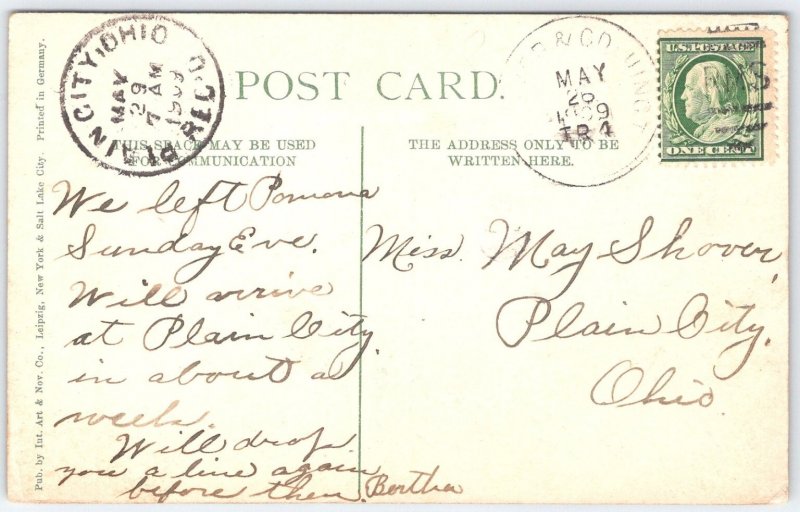 POST CARD.
PLAIN CITY, OHIO
MAY
29
7 AM
1909
REC'D.
& CO.
MAY
26
1909
TR 4
U.S. POSTAGE
ONE CENT
THIS SPACE MAY BE USED
FOR COMMUNICATION
THE ADDRESS ONLY TO BE
WRITTEN HERE.
We left Pomona
Sunday Eve.
Will arrive
at Plain City.
in about a
week.
Will drop
you a line again
before then. Bertha
Miss. May Shover,
Plain City.
Ohio
Pub. by Int. Art & Nov. Co., Leipzig, New York & Salt Lake City. Printed in Germany.